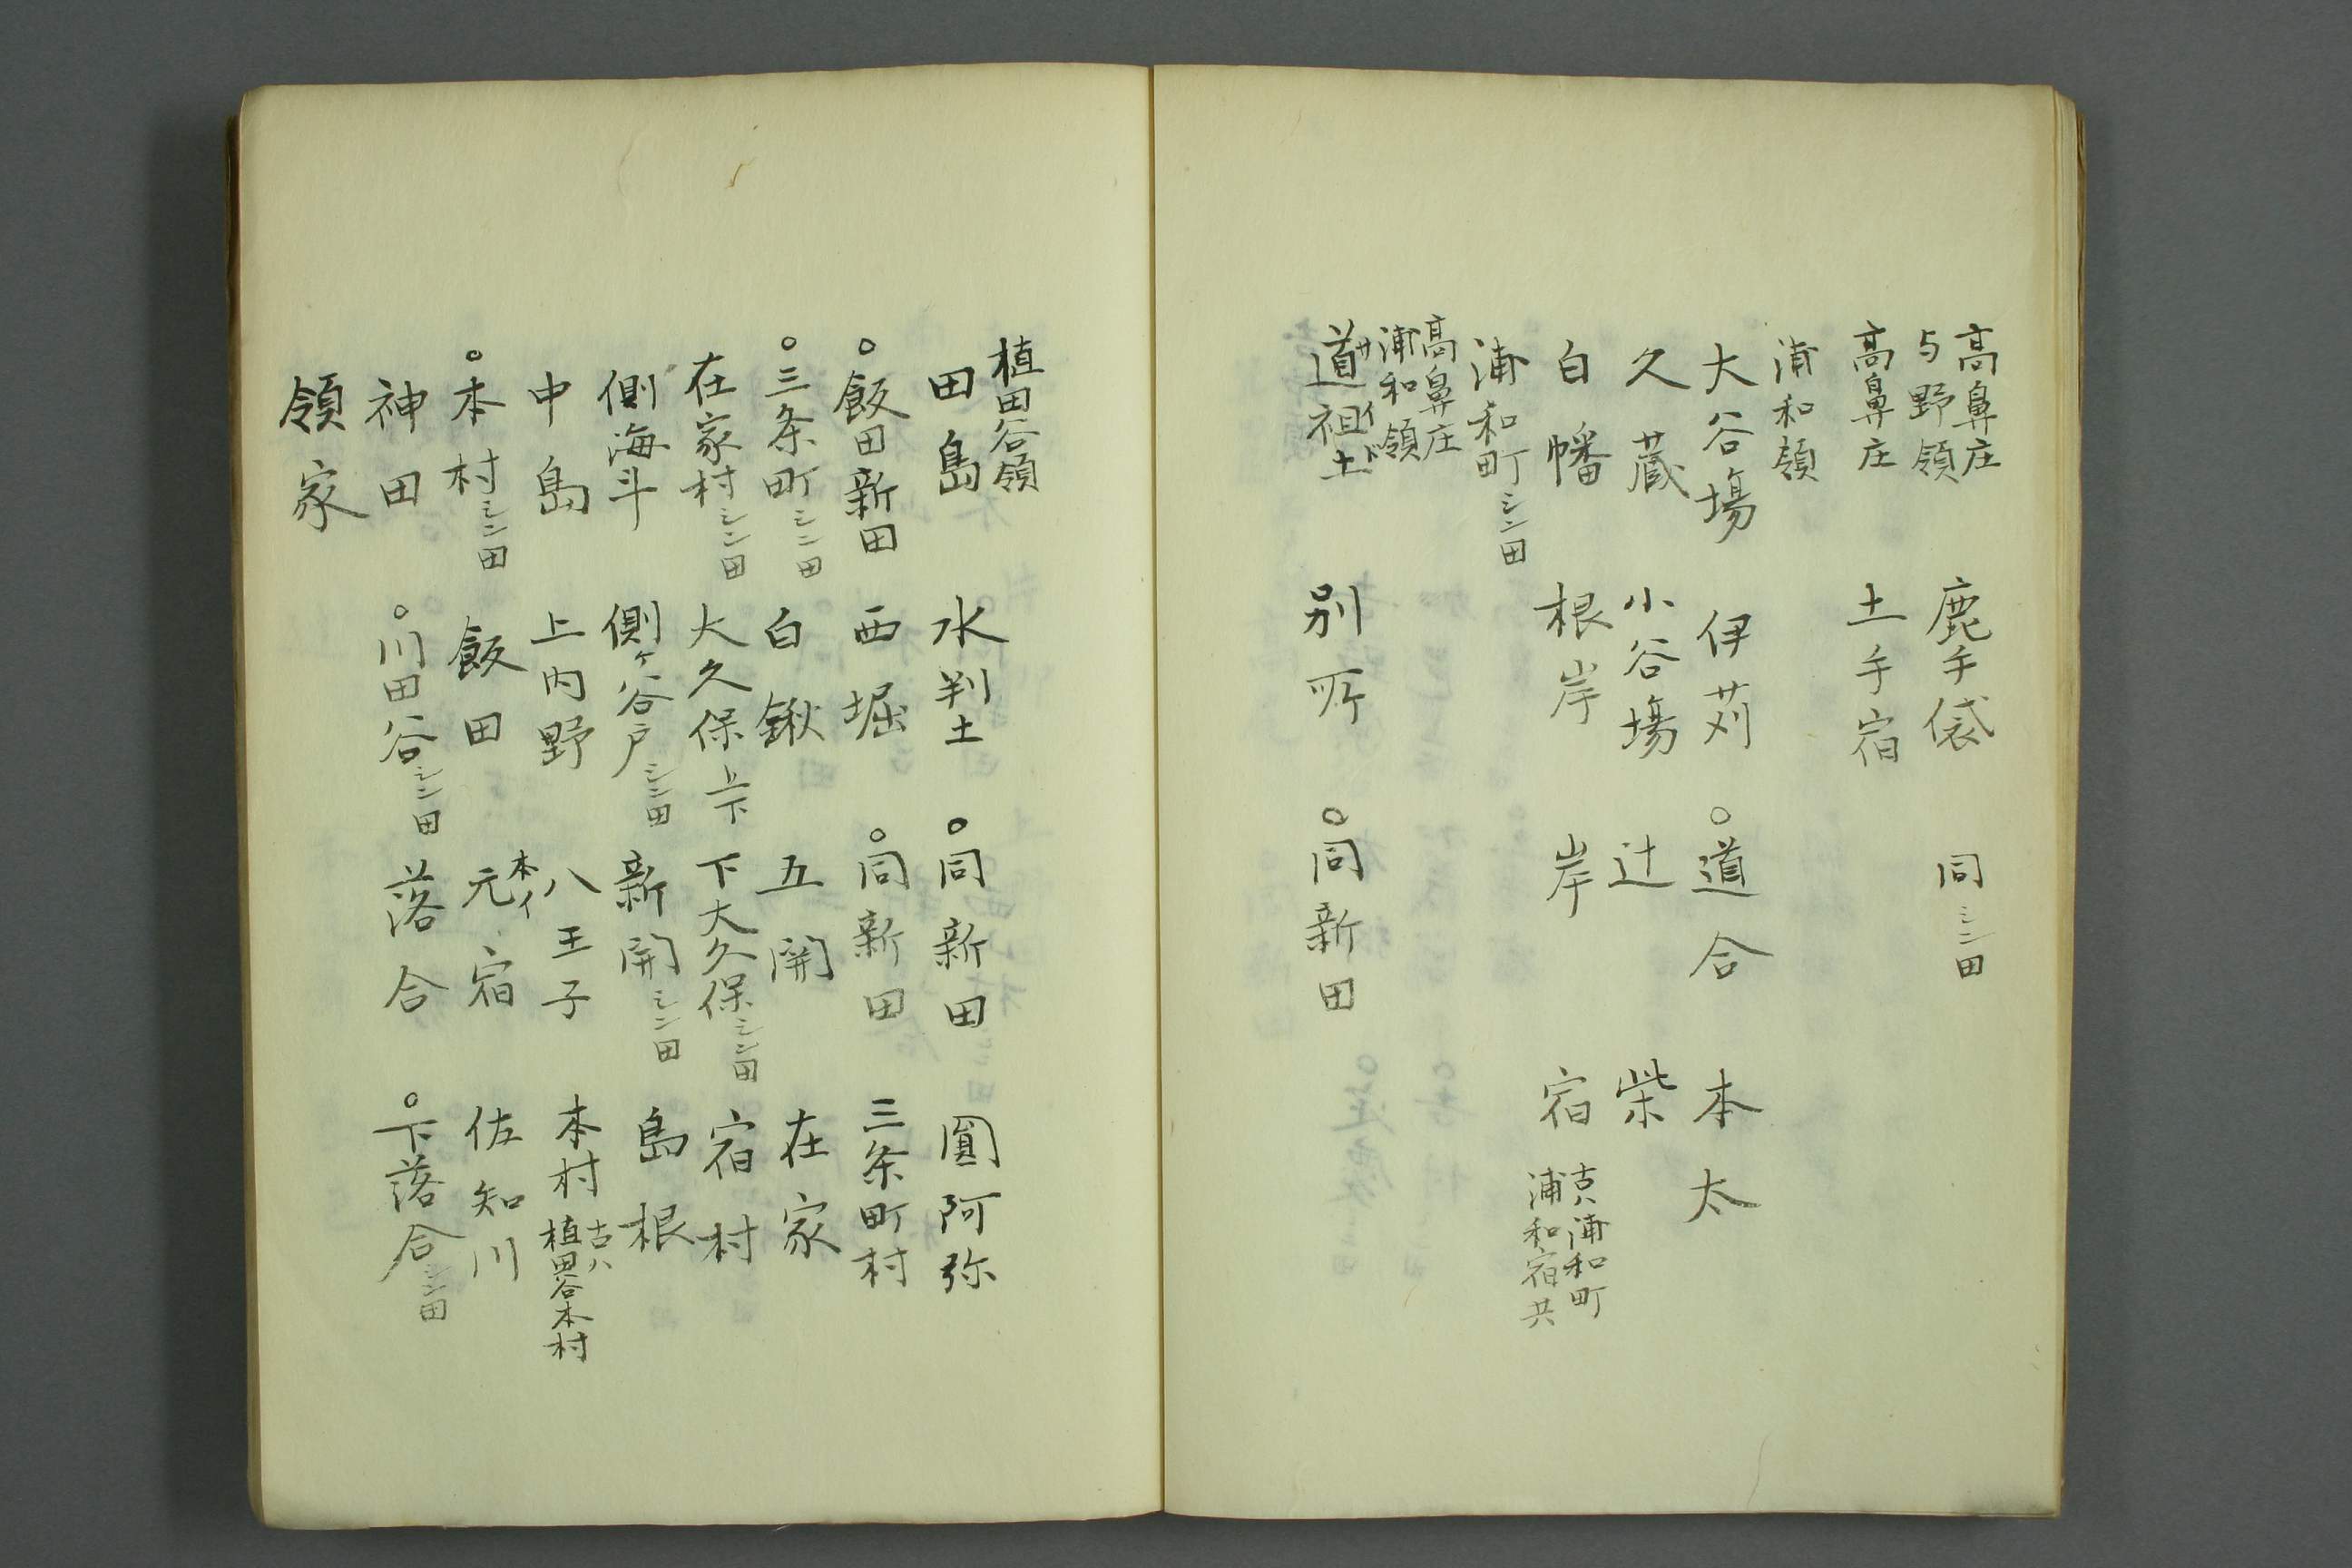 高鼻庄
与野領　鹿手袋　同シン田
高鼻庄　土手宿
浦和領
大谷場　伊苅　○道合　本太
久蔵　小谷場　辻　柴
白幡　根岸　岸　宿　古ハ浦和町
浦和宿共
浦和町シン田
高鼻庄
浦和領
道祖土　サイド　別所　○同新田
植田谷領
田島　水判土　○同新田　圓阿弥
○飯田新田　西堀　○同新田　三条町村
○三条町シン田　白鍬　五関　在家
在家村シン田　大久保上下　下大久保シン田　宿村
側海斗　側ヶ谷戸シン田　新開シン田　島根
中島　上内野　八王子　本村　古ハ
植田谷本村
○本村シン田　飯田　元宿　本イ　佐知川
神田　○川田谷シン田　落合　○下落合シン田
領家